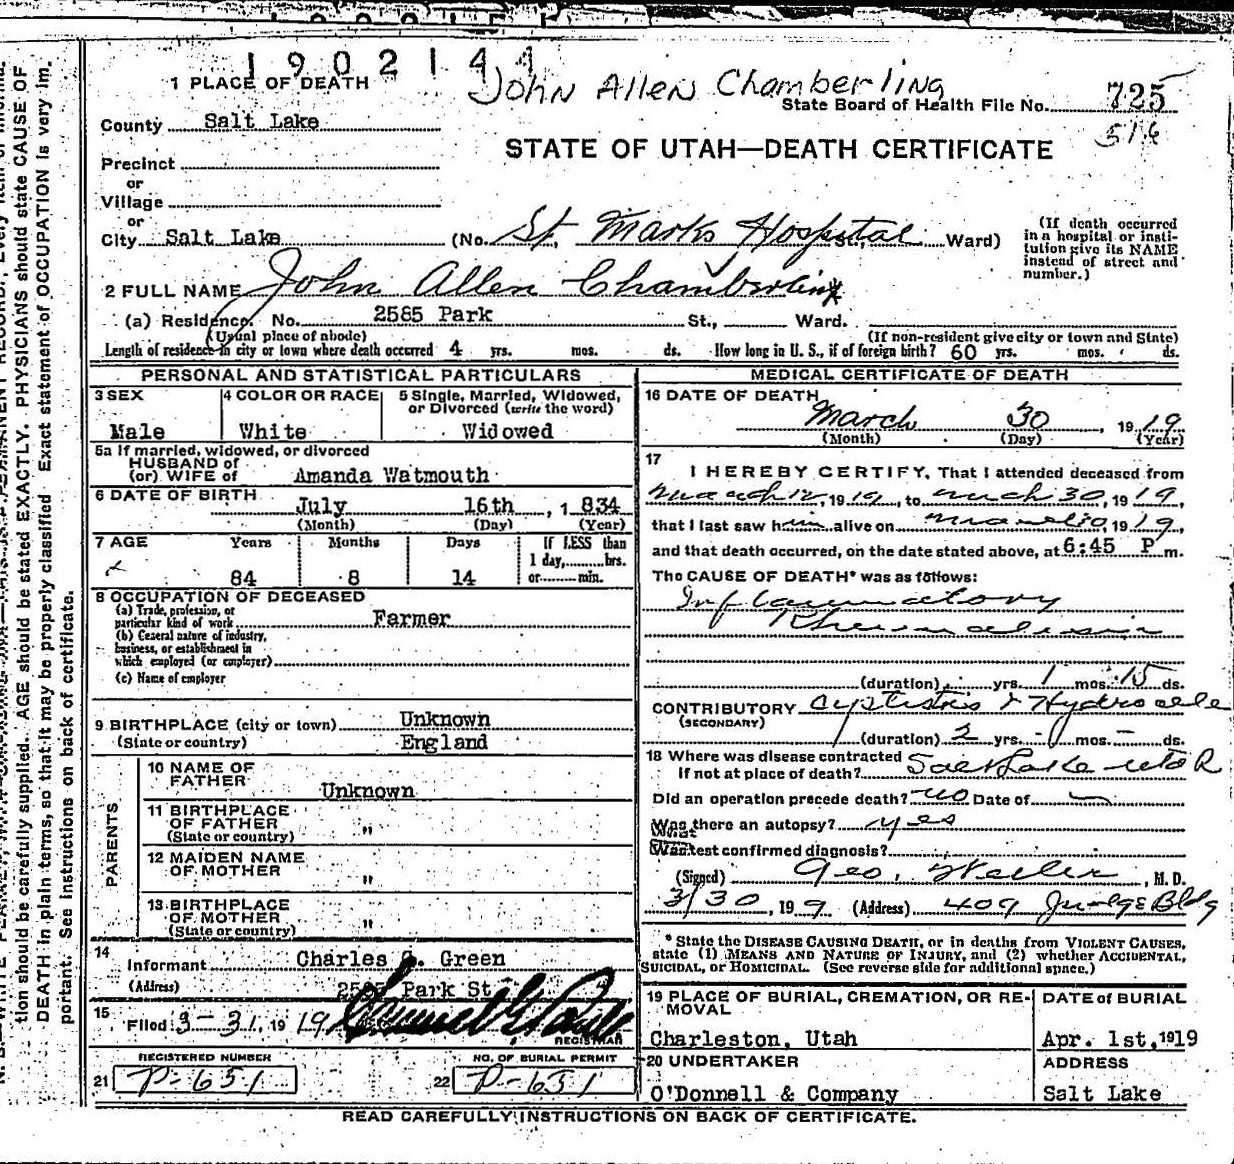 1902144
John Allen Chamberling
1 PLACE OF DEATH
State Board of Health File No. 725
516
County Salt Lake
STATE OF UTAH—DEATH CERTIFICATE
Precinct
or
Village
or
City Salt Lake (No. St. Marks Hospital St., Ward)
(If death occurred in a hospital or institution give its NAME instead of street and number.)
2 FULL NAME John Allen Chamberling
(a) Residence. No. 2585 Park St., Ward.
(Usual place of abode) (If non-resident give city or town and State)
Length of residence in city or town where death occurred 4 yrs. mos. ds. How long in U. S., if of foreign birth? 60 yrs. mos. ds.
PERSONAL AND STATISTICAL PARTICULARS
3 SEX
Male
4 COLOR OR RACE
White
5 Single, Married, Widowed, or Divorced (write the word)
Widowed
5a If married, widowed, or divorced
HUSBAND of
(or) WIFE of Amanda Watmouth
6 DATE OF BIRTH July 16th, 1834
(Month) (Day) (Year)
7 AGE Years Months Days If LESS than
1 day, hrs.
84 8 14 or min.
8 OCCUPATION OF DECEASED
(a) Trade, profession, or
particular kind of work Farmer
(b) General nature of industry,
business, or establishment in
which employed (or employer)
(c) Name of employer
9 BIRTHPLACE (city or town) Unknown
(State or country) England
PARENTS
10 NAME OF
FATHER Unknown
11 BIRTHPLACE
OF FATHER
(State or country) "
12 MAIDEN NAME
OF MOTHER "
13 BIRTHPLACE
OF MOTHER
(State or country) "
14
Informant Charles G. Green
(Address) 2585 Park St
15
Filed 3-31, 1919
REGISTRAR
REGISTERED NUMBER
21 P-651
NO. OF BURIAL PERMIT
22 P-631
MEDICAL CERTIFICATE OF DEATH
16 DATE OF DEATH
March 30, 1919
(Month) (Day) (Year)
17
I HEREBY CERTIFY, That I attended deceased from
March 12, 1919, to March 30, 1919,
that I last saw him alive on 1919,
and that death occurred, on the date stated above, at 6:45 P m.
The CAUSE OF DEATH* was as follows:
Inflammatory
Rheumatism
(duration) yrs. 1 mos. 15 ds.
CONTRIBUTORY Cystitis & Hydrocele
(SECONDARY)
(duration) 2 yrs. - mos. - ds.
18 Where was disease contracted
if not at place of death? Salt Lake Utah
Did an operation precede death? no Date of
Was there an autopsy? yes
What test confirmed diagnosis?
(Signed) Geo. , M.D.
3/30, 199 (Address) 409 Judge Bldg
* State the DISEASE CAUSING DEATH, or in deaths from VIOLENT CAUSES,
state (1) MEANS AND NATURE OF INJURY, and (2) whether ACCIDENTAL,
SUICIDAL, or HOMICIDAL. (See reverse side for additional space.)
19 PLACE OF BURIAL, CREMATION, OR REMOVAL
Charleston, Utah
DATE of BURIAL
Apr. 1st, 1919
20 UNDERTAKER
O'Donnell & Company
ADDRESS
Salt Lake
READ CAREFULLY INSTRUCTIONS ON BACK OF CERTIFICATE.
tion should be carefully supplied. AGE should be stated EXACTLY. PHYSICIANS should state CAUSE OF
DEATH in plain terms, so that it may be properly classified. Exact statement of OCCUPATION is very im-
portant. See instructions on back of certificate.